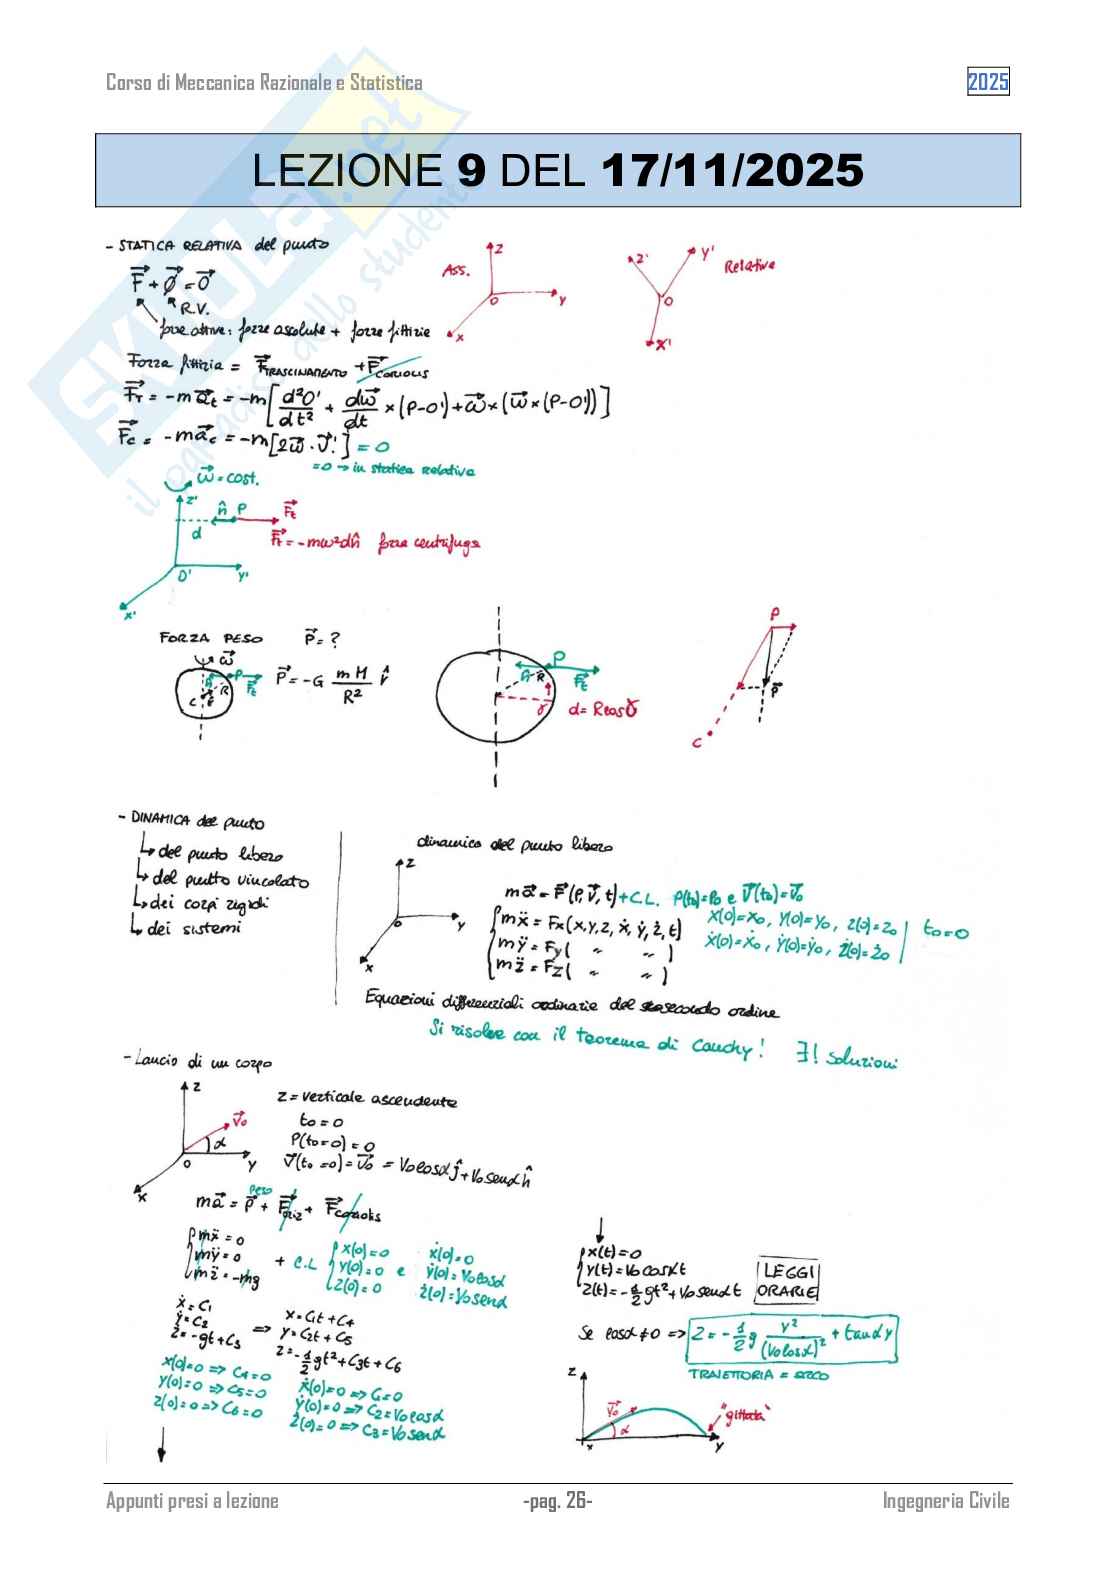 Corso di Meccanica Razionale e Statistica
2025
LEZIONE 9 DEL 17/11/2025
- STATICA RELATIVA del punto
F⃗ + Φ⃗ = 0⃗
R.V.
forze attive: forze assolute + forze fittizie
Ass.
z
O
y
x
z'
y'
O
x'
Relativa
Forza fittizia = F⃗TRASCINAMENTO + F⃗CORIOLIS
F⃗τ = -m a⃗t = -m [d²O'/dt² + dω⃗/dt × (P-O') + ω⃗ × (ω⃗ × (P-O'))]
F⃗c = -m a⃗c = -m [2ω⃗ · v⃗'] = 0
=0 → in statica relativa
ω⃗ = cost.
z'
n̂ P F⃗t
d
F⃗t = -mω²dn̂ forza centrifuga
O' y'
x'
FORZA PESO P⃗ = ?
ω⃗
P
F⃗t
R
C
P⃗ = -G mM/R² r̂
P
n̂ R F⃗t
γ
d = Rcosγ
P
P⃗
C
- DINAMICA del punto
↳ del punto libero
↳ del punto vincolato
↳ dei corpi rigidi
↳ dei sistemi
dinamica del punto libero
z
O
y
x
ma⃗ = F⃗(P, v⃗, t) + C.L. P(t0) = P0 e v⃗(t0) = v⃗0
mẍ = Fx(x,y,z, ẋ, ẏ, ż, t)
mÿ = Fy( " " )
mz̈ = Fz( " " )
x(0)=x0, y(0)=y0, z(0)=z0
ẋ(0)=ẋ0, ẏ(0)=ẏ0, ż(0)=ż0
t0=0
Equazioni differenziali ordinarie del secondo ordine
Si risolve con il teorema di Cauchy! ∃! soluzioni
- Lancio di un corpo
z
v⃗0
α
O
y
x
z = verticale ascendente
t0 = 0
P(t0=0) = 0
v⃗(t0=0) = v⃗0 = V0cosα ĵ + V0senα n̂
peso
ma⃗ = P⃗ + F⃗ + F⃗coriolis
mẍ = 0
mÿ = 0
mz̈ = -mg
+ C.L
x(0)=0
y(0)=0
z(0)=0
e
ẋ(0)=0
ẏ(0)=V0cosα
ż(0)=V0senα
ẋ = C1
ẏ = C2
ż = -gt + C3
⇒
x = C1t + C4
y = C2t + C5
z = -1/2 gt² + C3t + C6
x(0)=0 ⇒ C4=0
y(0)=0 ⇒ C5=0
z(0)=0 ⇒ C6=0
ẋ(0)=0 ⇒ C1=0
ẏ(0)=0 ⇒ C2=V0cosα
ż(0)=0 ⇒ C3=V0senα
x(t)=0
y(t)=V0cosαt
z(t)=-1/2 gt² + V0senαt
LEGGI
ORARIE
Se cosα ≠ 0 ⇒ z = -1/2 g y²/(V0cosα)² + tanαy
TRAIETTORIA = ARCO
z
v⃗0
α
x
y
"gittata"
Appunti presi a lezione
-pag. 26-
Ingegneria Civile
SKUOLA.net
il paradiso dello studente